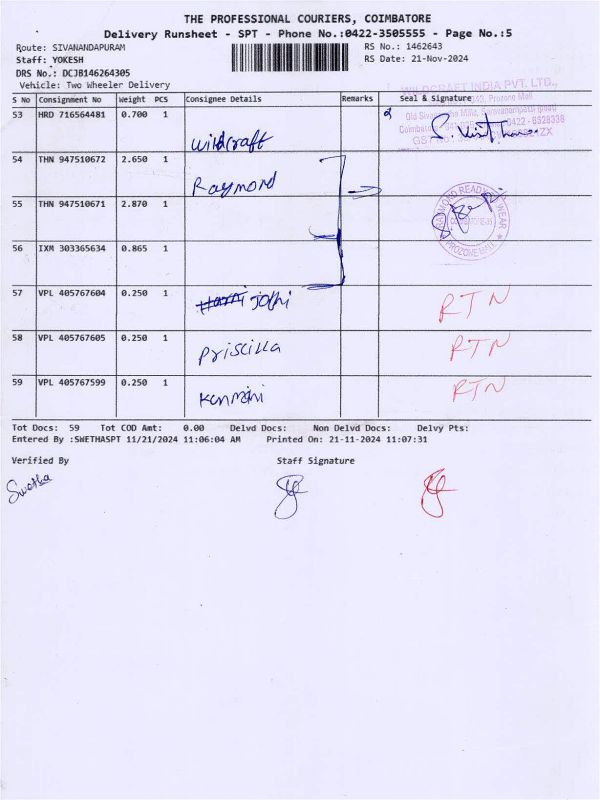 THE PROFESSIONAL COURIERS, COIMBATORE
Delivery Runsheet - SPT - Phone No.:0422-3505555 - Page No.:5
Route: SIVANANDAPURAM
RS No.: 1462643
Staff: YOKESH
RS Date: 21-Nov-2024
DRS No.: DCJB146264305
Vehicle: Two Wheeler Delivery
WILDCRAFT INDIA PVT. LTD.,
S No Consignment No Weight PCS Consignee Details Remarks Seal & Signature
Prozone Mall
53 HRD 716564481 0.700 1 Wildcraft
54 THN 947510672 2.650 1 Raymond
55 THN 947510671 2.870 1
RAYMOND READY WEAR
PROZONE MALL
56 IXM 303365634 0.865 1
57 VPL 405767604 0.250 1 Jothi RTN
58 VPL 405767605 0.250 1 Priscilla RTN
59 VPL 405767599 0.250 1 Kanmani RTN
Tot Docs: 59 Tot COD Amt: 0.00 Delvd Docs: Non Delvd Docs: Delvy Pts:
Entered By :SWETHASPT 11/21/2024 11:06:04 AM Printed On: 21-11-2024 11:07:31
Verified By Staff Signature
Swetha